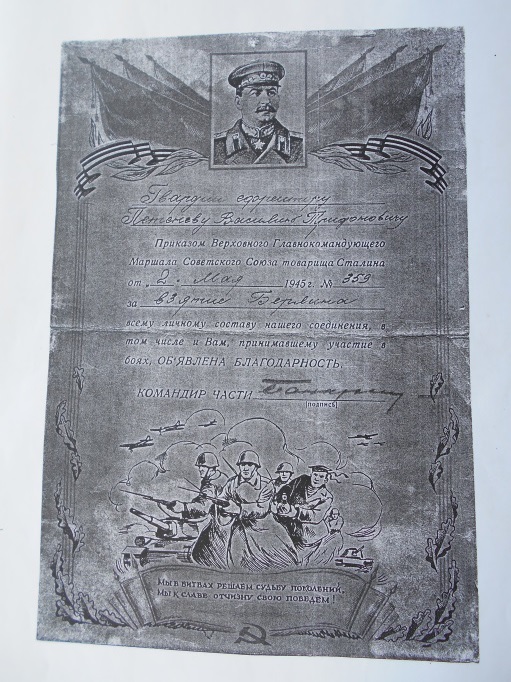 Гвардии ефрейтору
Василию Трифоновичу
Приказом Верховного Главнокомандующего
Маршала Советского Союза товарища Сталина
от „2. Мая 1945 г. № 359
за взятие Берлина
всему личному составу нашего соединения, в
том числе и Вам, принимавшему участие в
боях, ОБ'ЯВЛЕНА БЛАГОДАРНОСТЬ.
КОМАНДИР ЧАСТИ
(подпись)
МЫ В БИТВАХ РЕШАЕМ СУДЬБУ ПОКОЛЕНИЙ,
МЫ К СЛАВЕ ОТЧИЗНУ СВОЮ ПОВЕДЕМ!